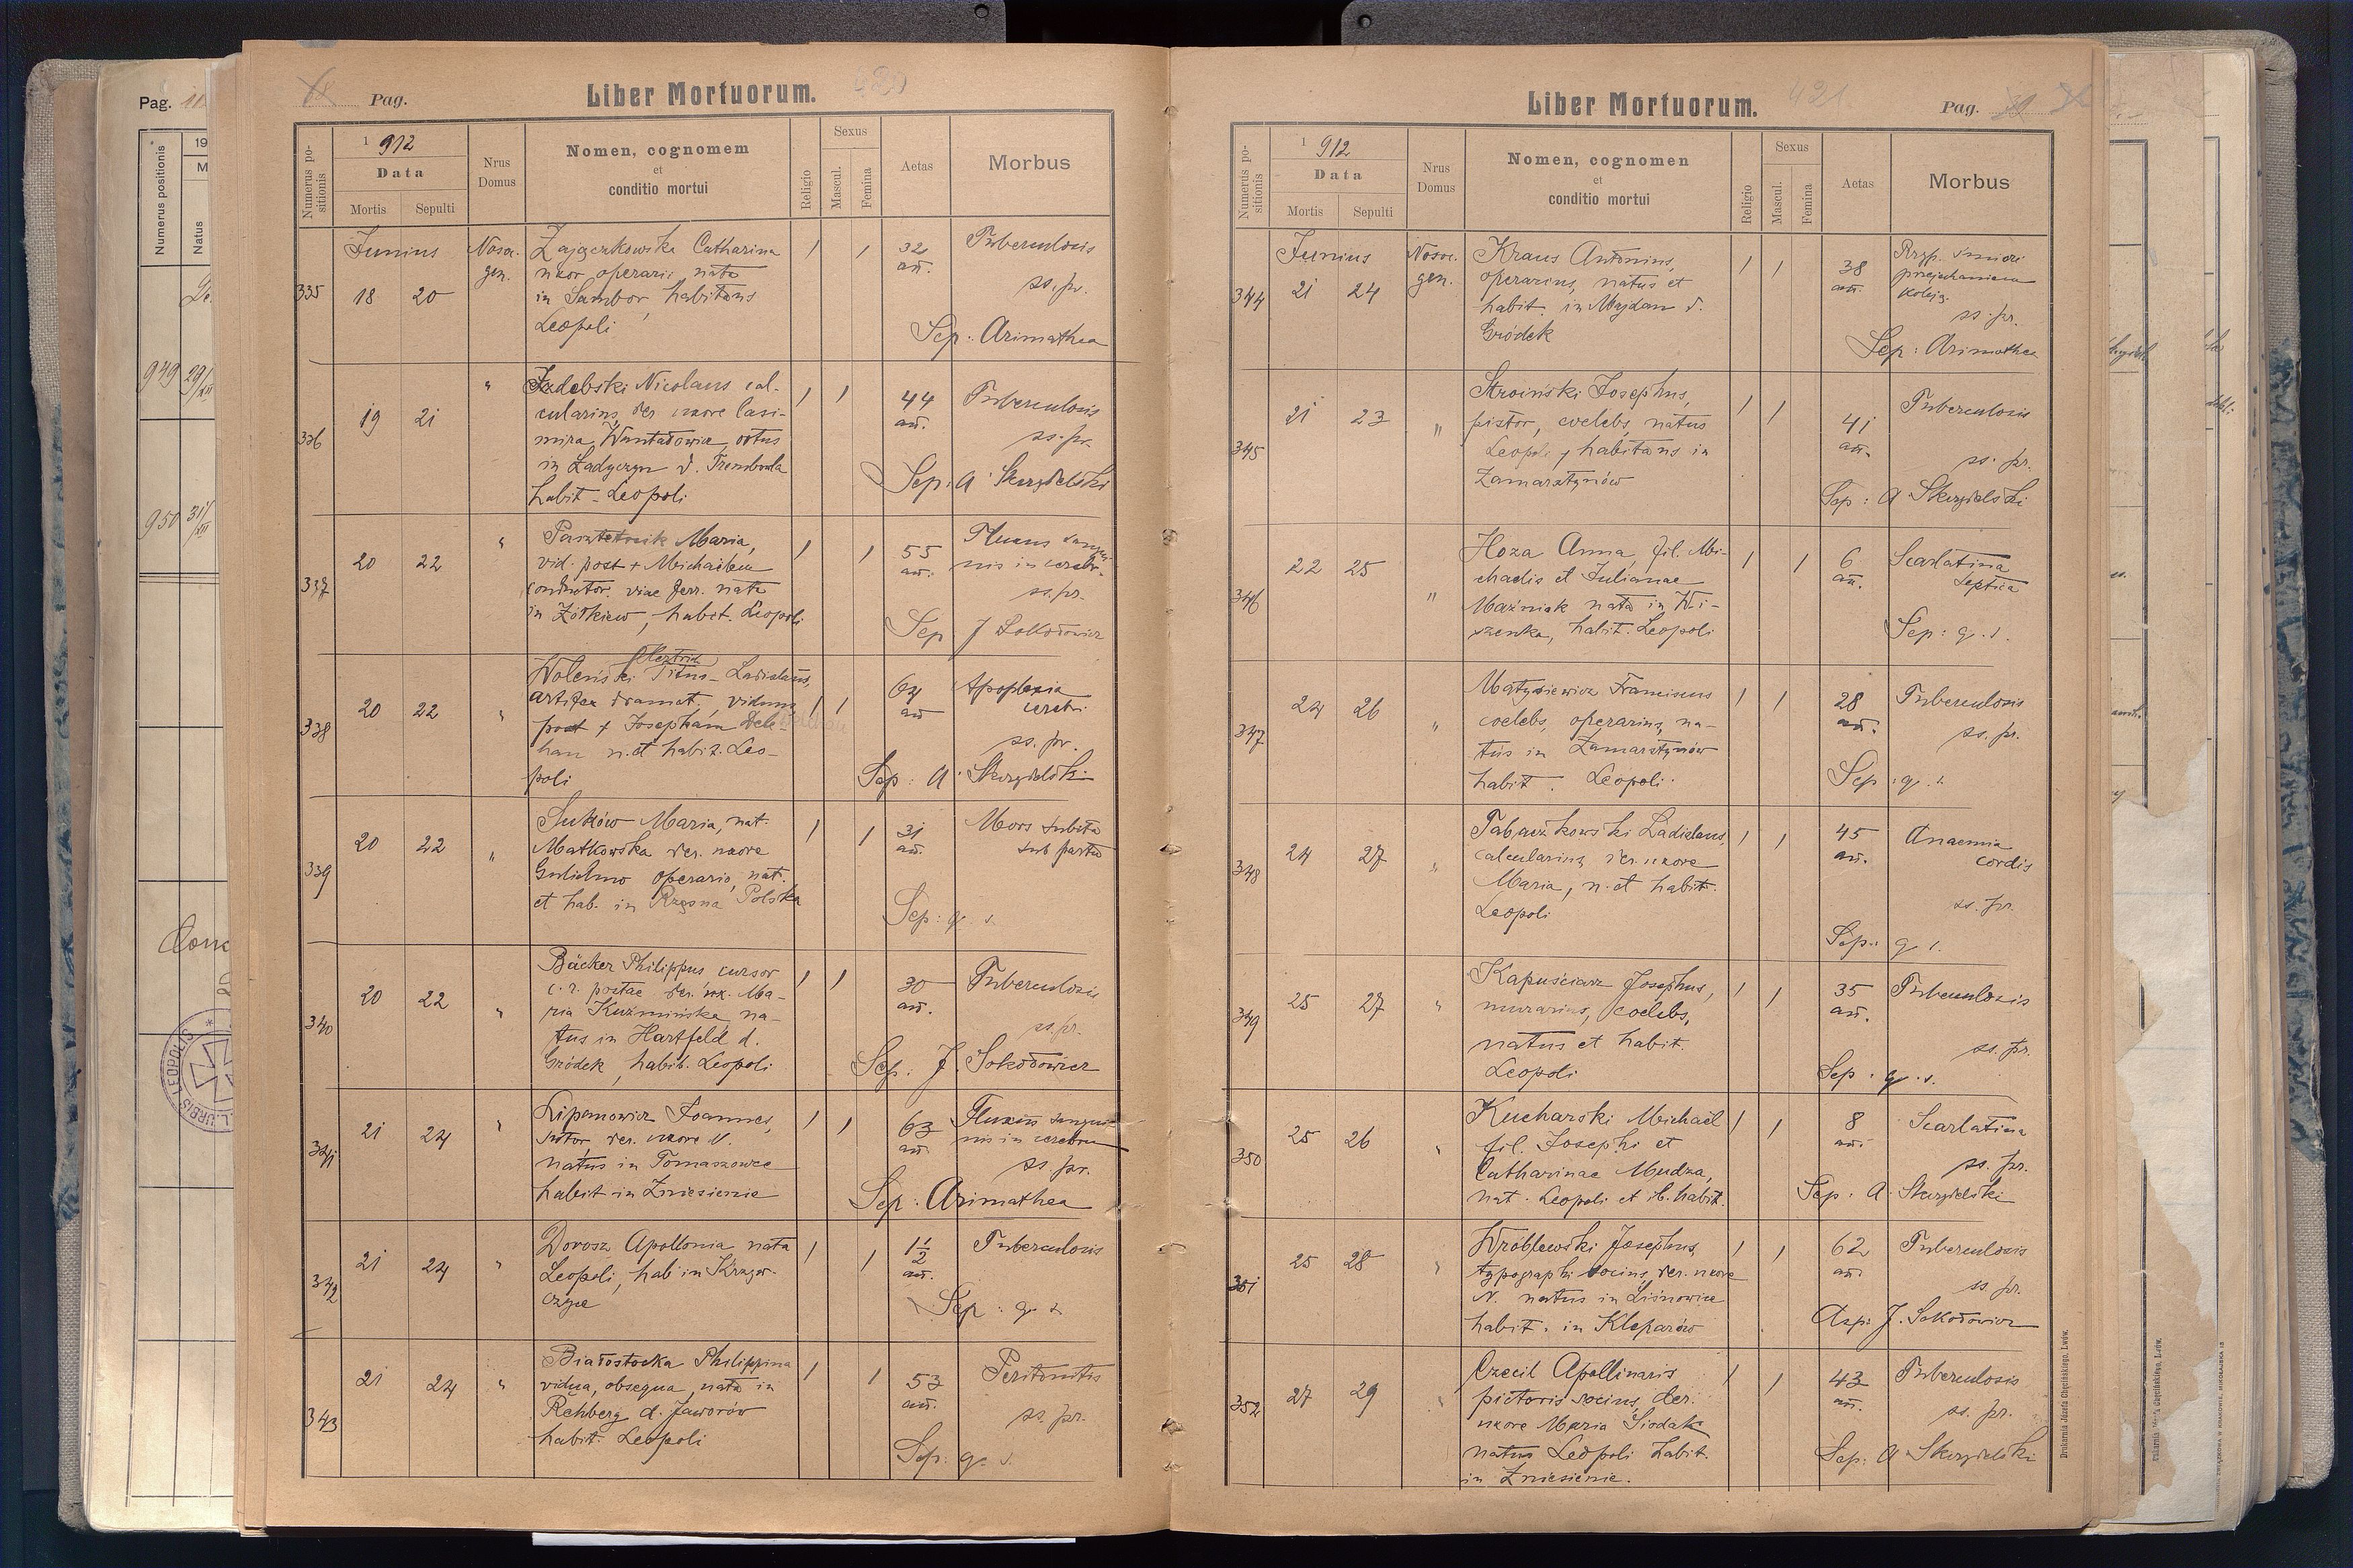 Pag. 11
Numerus positionis
19
M
Natus
949 29/XII
950 31/XII
LEOPOLIS
URBIS
Pag.
Liber Mortuorum.
Numerus positionis
1912
Data
Mortis
Sepulti
Nrus Domus
Nomen, cognomem
et
conditio mortui
Religio
Sexus
Mascul.
Femina
Aetas
Morbus
335
Junius
18 20
Nosoc. gen.
Zajączkowska Catharina
uxor operarii, nata
in Sambor, habitans
Leopoli
1 1
32 an.
Tuberculosis
ss. pr.
Sep: Arimathea
336
19 21
"
Izdebski Nicolaus cal-
cularius, der. uxore Casi-
mira, ortus
in Ładyczyn d. Trembowla
habit. Leopoli
1 1
44 an.
Tuberculosis
ss. pr.
Sep: A. Skrzydelski
337
20 22
"
Pasztetnik Maria,
vid. post + Michaelem
conductor. viae ferr. nata
in Żółkiew, habit. Leopoli
1 1
55 an.
Fluxus sangui-
nis in cerebr.
ss. pr.
Sep J Sokołowicz
338
20 22
"
Woleński Titus-Ladislaus,
artifex dramat., viduus
post + Josepham Dele-
han n. et habit. Leo-
poli
1 1
64 an
Apoplexia
cerebri
ss. pr.
Sep: A. Skrzydelski
339
20 22
"
Suków Maria, nat.
Matkowska der. uxore
Gulielmo operario, nat.
et hab. in Rzęsna Polska
1 1
31 an.
Mors subita
sub partu
Sep: g. s.
340
20 22
"
Bäcker Philippus cursor
c. r. postae der. ux. Ma-
ria Kuźmińska na-
tus in Hartfeld d.
Gródek, habit. Leopoli
1 1
30 an.
Tuberculosis
ss. pr.
Sep: J. Sokołowicz
341
21 24
"
Lipanowicz Joannes,
sutor, der. uxore N.
natus in Tomaszowce
habit in Zniesienie
1 1
63 an
Fluxus sangui-
nis in cerebrum
ss. pr.
Sep: Arimathea
342
21 24
"
Dorosz Apollonia nata
Leopoli, hab in Krzyw-
czyce
1 1
1 1/2 an.
Tuberculosis
Sep: g. s.
343
21 24
"
Białostocka Philippina
vidua, obsequa, nata in
Rehberg d. Jaworów
habit. Leopoli
1 1
53 an.
Peritonitis
ss. pr.
Sep: g. s.
Liber Mortuorum.
421.
Pag.
Numerus positionis
1912
Data
Mortis
Sepulti
Nrus Domus
Nomen, cognomen
et
conditio mortui
Religio
Sexus
Mascul.
Femina
Aetas
Morbus
344
Junius
21 24
Nosoc. gen.
Kraus Antonius,
operarius, natus et
habit. in Majdan d.
Gródek
1 1
38 an.
Przyp. śmierć
przejechaniem
koleją.
ss. pr.
Sep: Arimathea
345
21 23
"
Stroiński Josephus,
pistor, coelebs, natus
Leopoli, habitans in
Zamarstynów
1 1
41 an.
Tuberculosis
ss. pr.
Sep: A Skrzydelski
346
22 25
"
Hoza Anna, fil. Mi-
chaelis et Julianae
Maźniak nata in Wi-
szenka, habit. Leopoli
1 1
6 an.
Scarlatina
septica
Sep: g. s.
347
24 26
"
Matysiewicz Franciscus
coelebs, operarius, na-
tus in Zamarstynów
habit. Leopoli.
1 1
28 an.
Tuberculosis
ss. pr.
Sep: g. s.
348
24 27
"
Tabaczkowski Ladislaus,
calcularius, der. uxore
Maria, n. et habit.
Leopoli
1 1
45 an.
Anaemia
cordis
ss. pr.
Sep: g. s.
349
25 27
"
Kapuściarz Josephus,
murarius, coelebs,
natus et habit.
Leopoli
1 1
35 an.
Tuberculosis
ss. pr.
Sep. g. s.
350
25 26
"
Kucharski Michael
fil. Josephi et
Catharinae Mudza,
nat. Leopoli et ib. habit.
1 1
8 an.
Scarlatina
ss. pr.
Sep. A. Skrzydelski
351
25 28
"
Wróblewski Josephus
typographi socius, der. uxore
N. natus in Liśnowice
habit. in Kleparów
1 1
62 an.
Tuberculosis
ss. pr.
J. Sokołowicz
352
27 29
"
Czecil Apollinaris
pictoris socius, der.
uxore Maria Siodak
natus Leopoli habit.
in Zniesienie.
1 1
43 an.
Tuberculosis
ss. pr.
Sep: A Skrzydelski
Drukarnia Józefa Chęcińskiego, Lwów.